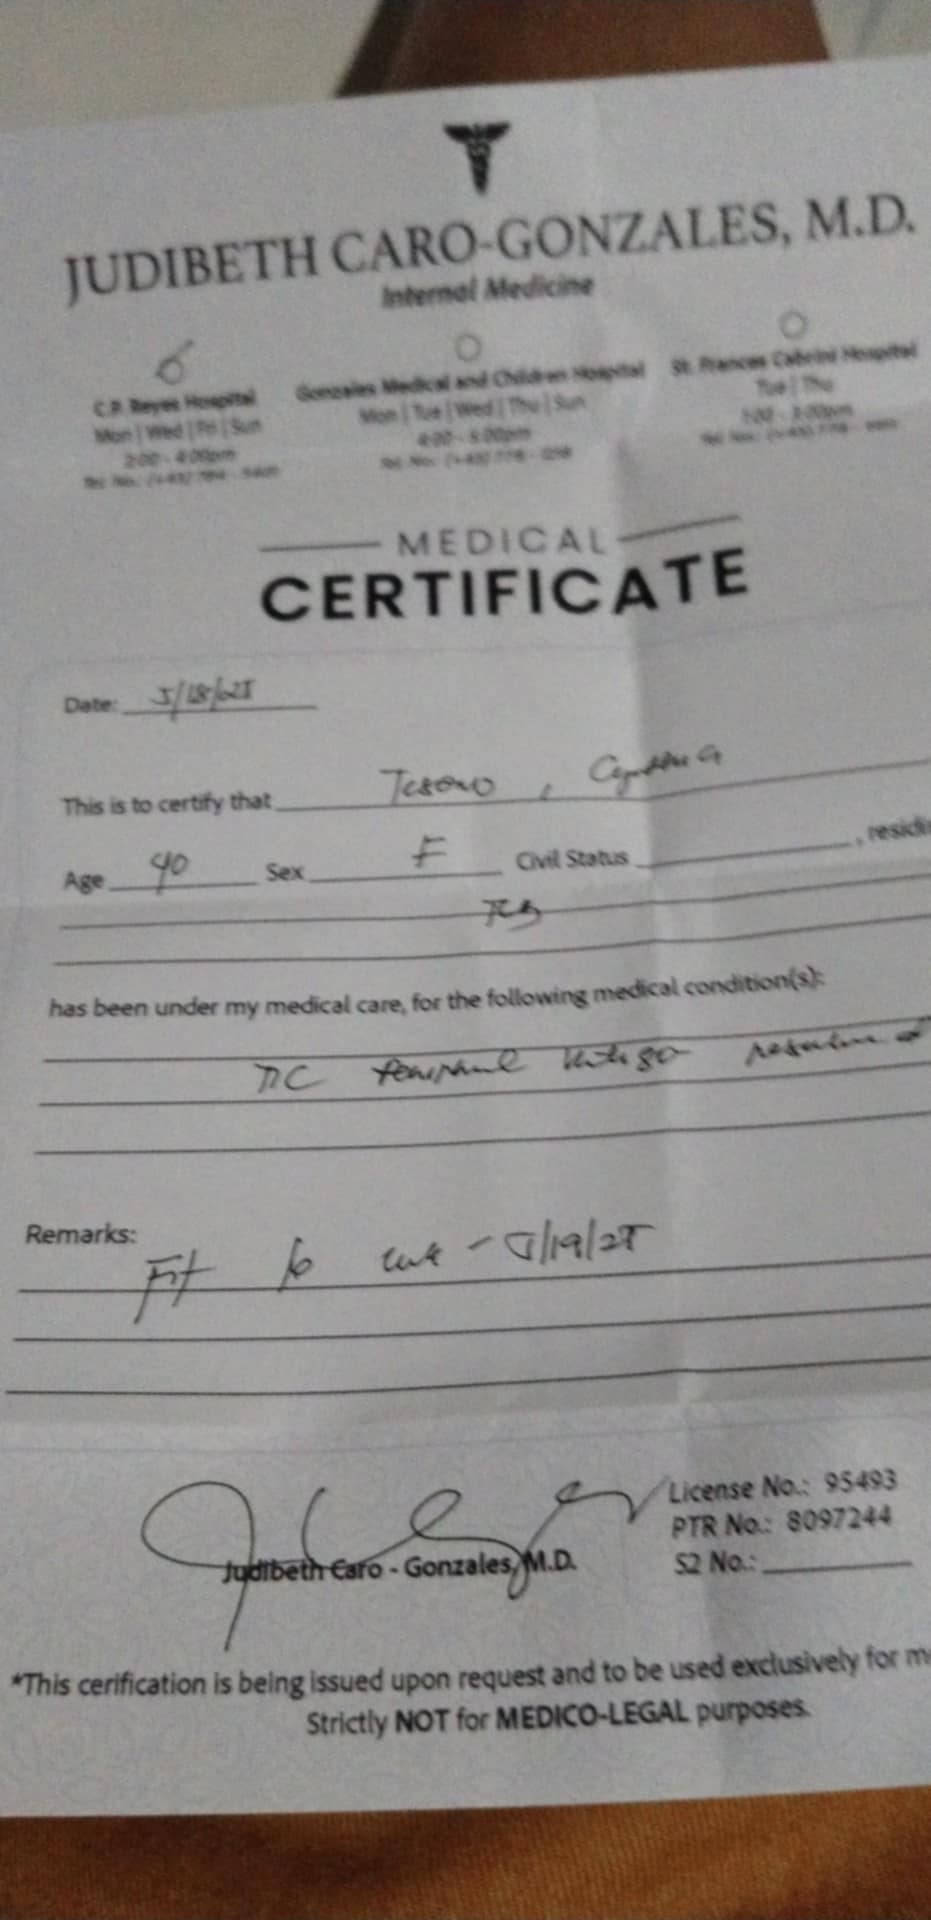 JUDIBETH CARO-GONZALES, M.D.
Internal Medicine
C.P. Reyes Hospital
Mon | Wed | Fri | Sun
2:00 - 4:00pm
Gonzales Medical and Children Hospital
Mon | Tue | Wed | Thu | Sun
4:00 - 5:00pm
St. Frances Cabrini Hospital
Tue | Thu
1:00 - 3:00pm
MEDICAL
CERTIFICATE
Date: 5/18/25
This is to certify that Tesoro,
Age 40 Sex F Civil Status , residi
has been under my medical care, for the following medical condition(s):
peripheral vertigo
Remarks:
Fit to work - 5/19/25
Judibeth Caro - Gonzales, M.D.
License No.: 95493
PTR No.: 8097244
S2 No.:
*This cerification is being issued upon request and to be used exclusively for m
Strictly NOT for MEDICO-LEGAL purposes.